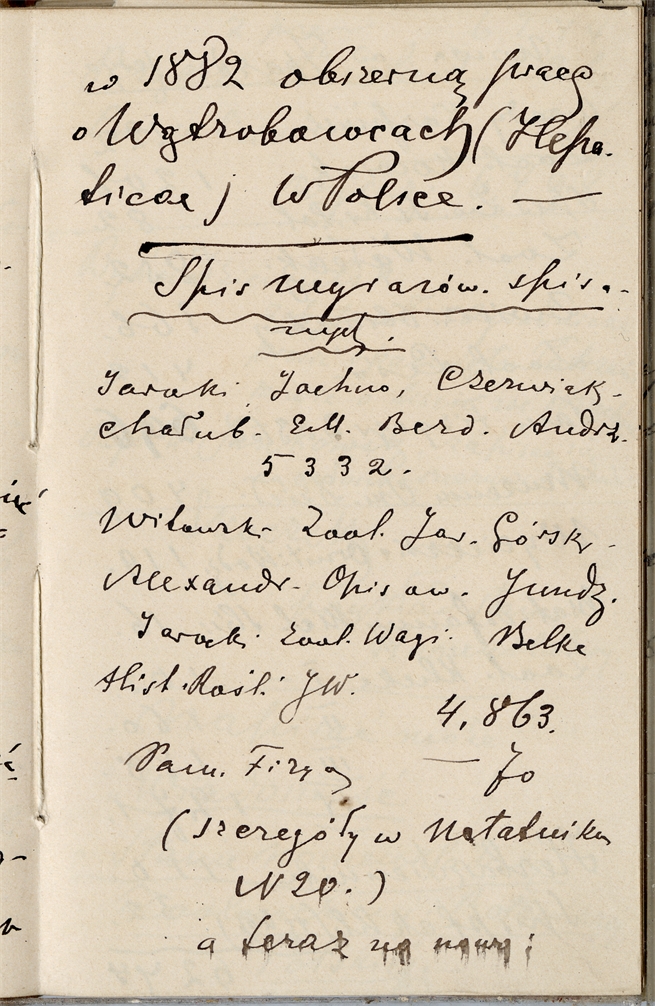 w 1882 obszerną pracę
o Wątrobowcach (Hepa-
ticae) w Polsce. —
Spis wyrazów spisa-
nych.
Jarocki, Jachno, Czerwiak.
Chałub. Ett. Berd. Andrz.
5332.
Witowski Zool. Jar. Górsk.
Alexandr. Opis ow. Jundz.
Jarocki Zool. Wagi. Belke
Hist. Rośl. JW.
4,863.
Pam. Fizyog — 70
(szczegóły w Notatniku
N 20.)
a teraz